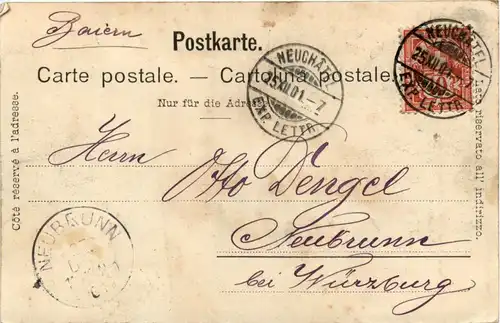 Baiern
Postkarte.
Carte postale. — Cartolina postale.
Nur für die Adresse.
NEUCHÂTEL
25.XII.01.–7
EXP. LETTR.
NEUCHÂTEL
25.XII.01
EXP. LETTR.
Côté réservé à l'adresse.
Lato riservato all' indirizzo.
Herrn
Otto Dengel
Neubrunn
bei Würzburg
NEUBRUNN